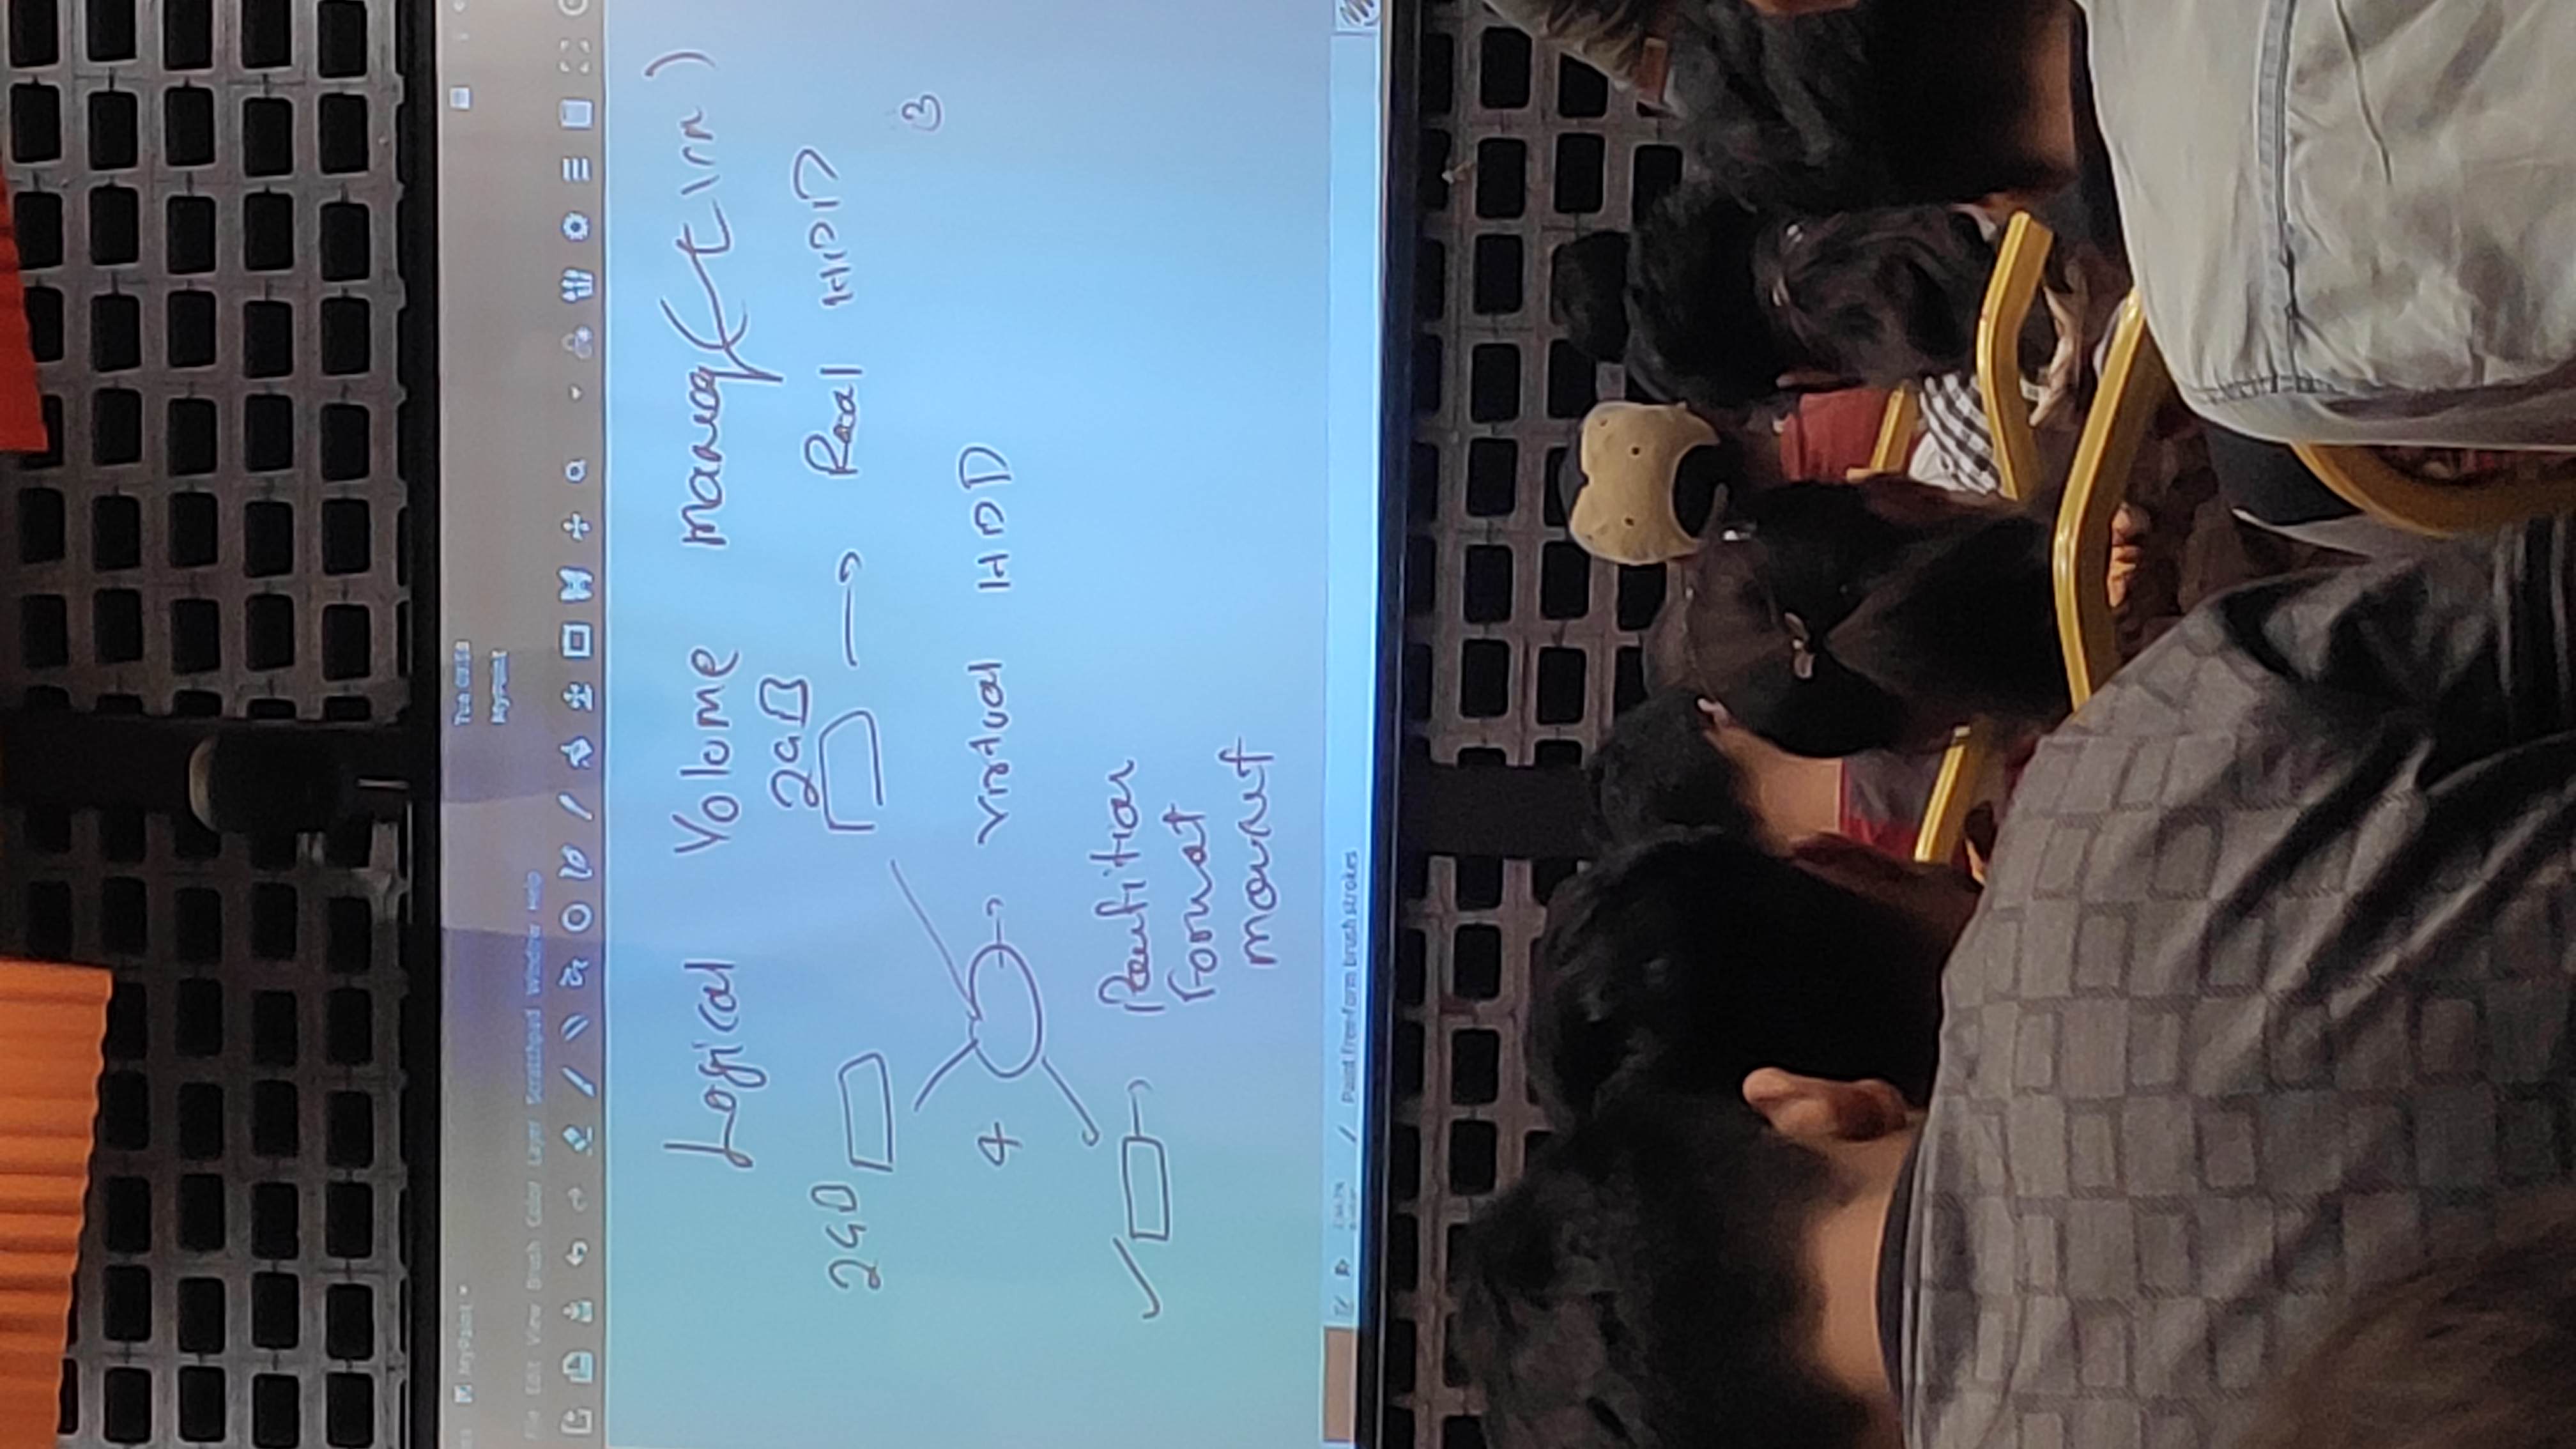 MyPaint
Tue
MyPaint
File Edit View Brush Color Layer Scratchpad Window Help
Logical Volume manag
2GB
2GB
Real HDD
3
4
Virtual HDD
Partition
Format
mount
Paint free-form brush strokes